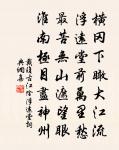 橫冈下瞰大江流
浮遠堂前萬里愁
最苦無山遮望眼
淮南極目盡神州
戴復古江陰浮遠堂詞